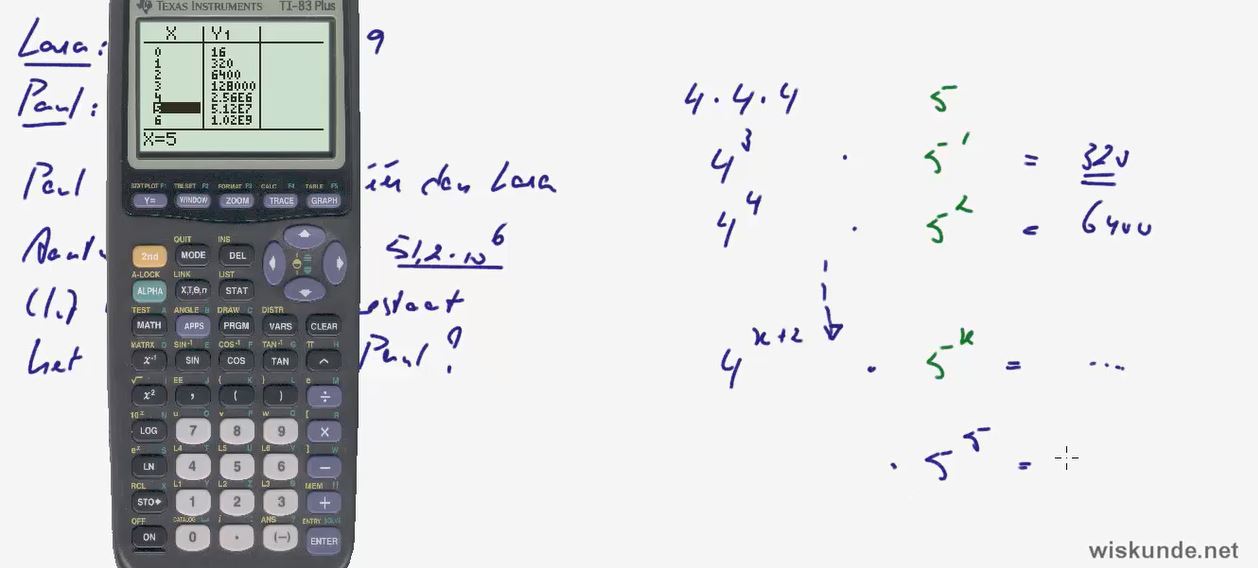 Lara: 9
Paul:
Paul één dan Lara
51,2 · 10^6
(1.)
het Paul?
TEXAS INSTRUMENTS TI-83 Plus
X Y1
0 16
1 320
2 6400
3 128000
4 2.56E6
5 5.12E7
6 1.02E9
X=5
STATPLOT F1 TBLSET F2 FORMAT F3 CALC F4 TABLE F5
Y= WINDOW ZOOM TRACE GRAPH
QUIT INS
2nd MODE DEL
A-LOCK LINK LIST
ALPHA X,T,Θ,n STAT
TEST A ANGLE B DRAW C DISTR
MATH APPS PRGM VARS CLEAR
MATRX D SIN⁻¹ E COS⁻¹ F TAN⁻¹ G π H
x⁻¹ SIN COS TAN ^
√ I EE J { K } L e M
x² , ( ) ÷
10ˣ N u O v P w Q [ R
LOG 7 8 9 ×
eˣ S L4 T L5 U L6 V ] W
LN 4 5 6 −
RCL X L1 Y L2 Z L3 θ MEM "
STO▸ 1 2 3 +
OFF CATALOG i : ANS ? ENTRY SOLVE
ON 0 . (−) ENTER
4 · 4 · 4 5
4^3 · 5^1 = 320
4^4 · 5^2 = 6400
4^(x+2) · 5^x = ...
· 5^5 =
wiskunde.net